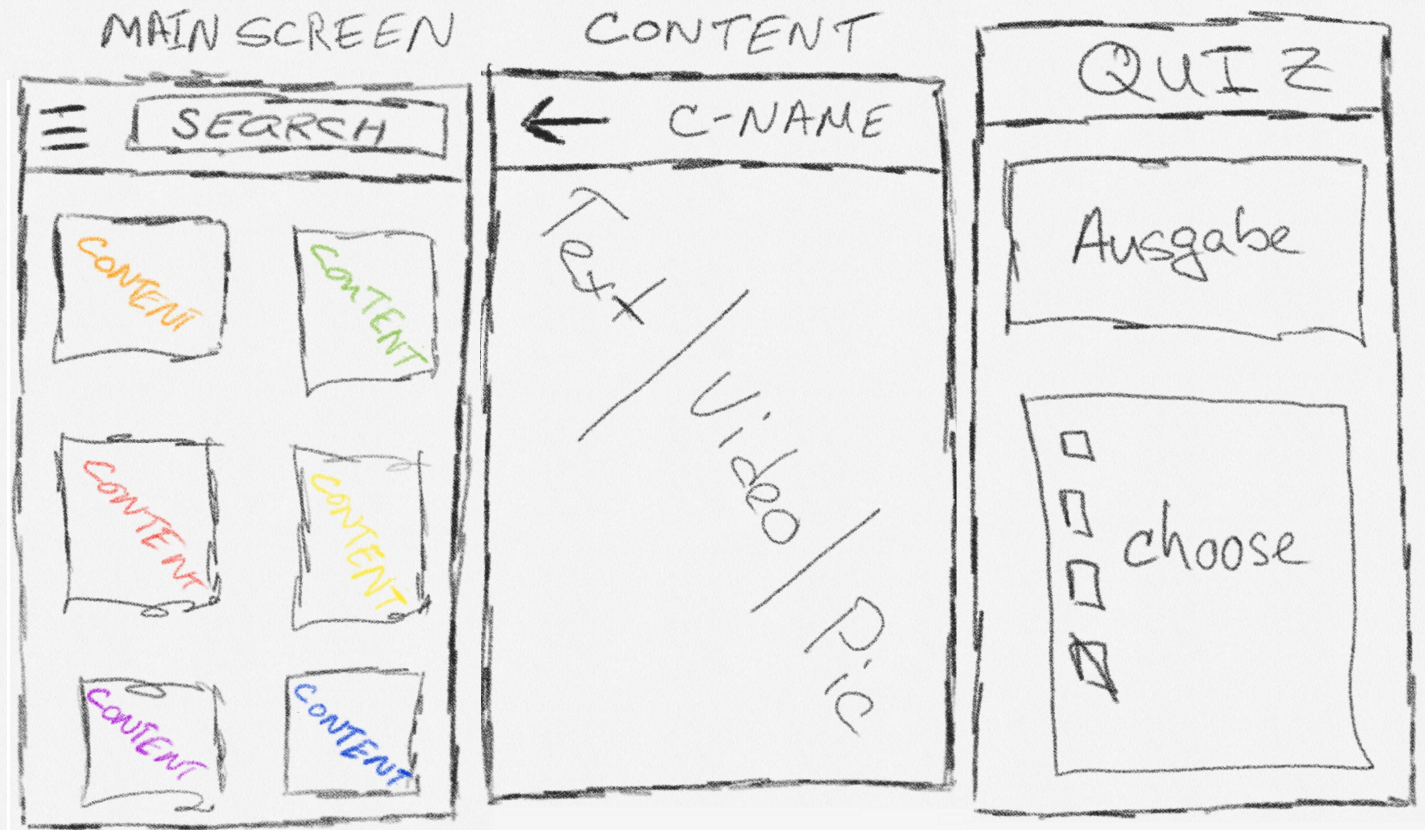 MAIN SCREEN
SEARCH
CONTENT
CONTENT
CONTENT
CONTENT
CONTENT
CONTENT
CONTENT
C-NAME
Text / Video / Pic
QUIZ
Ausgabe
choose